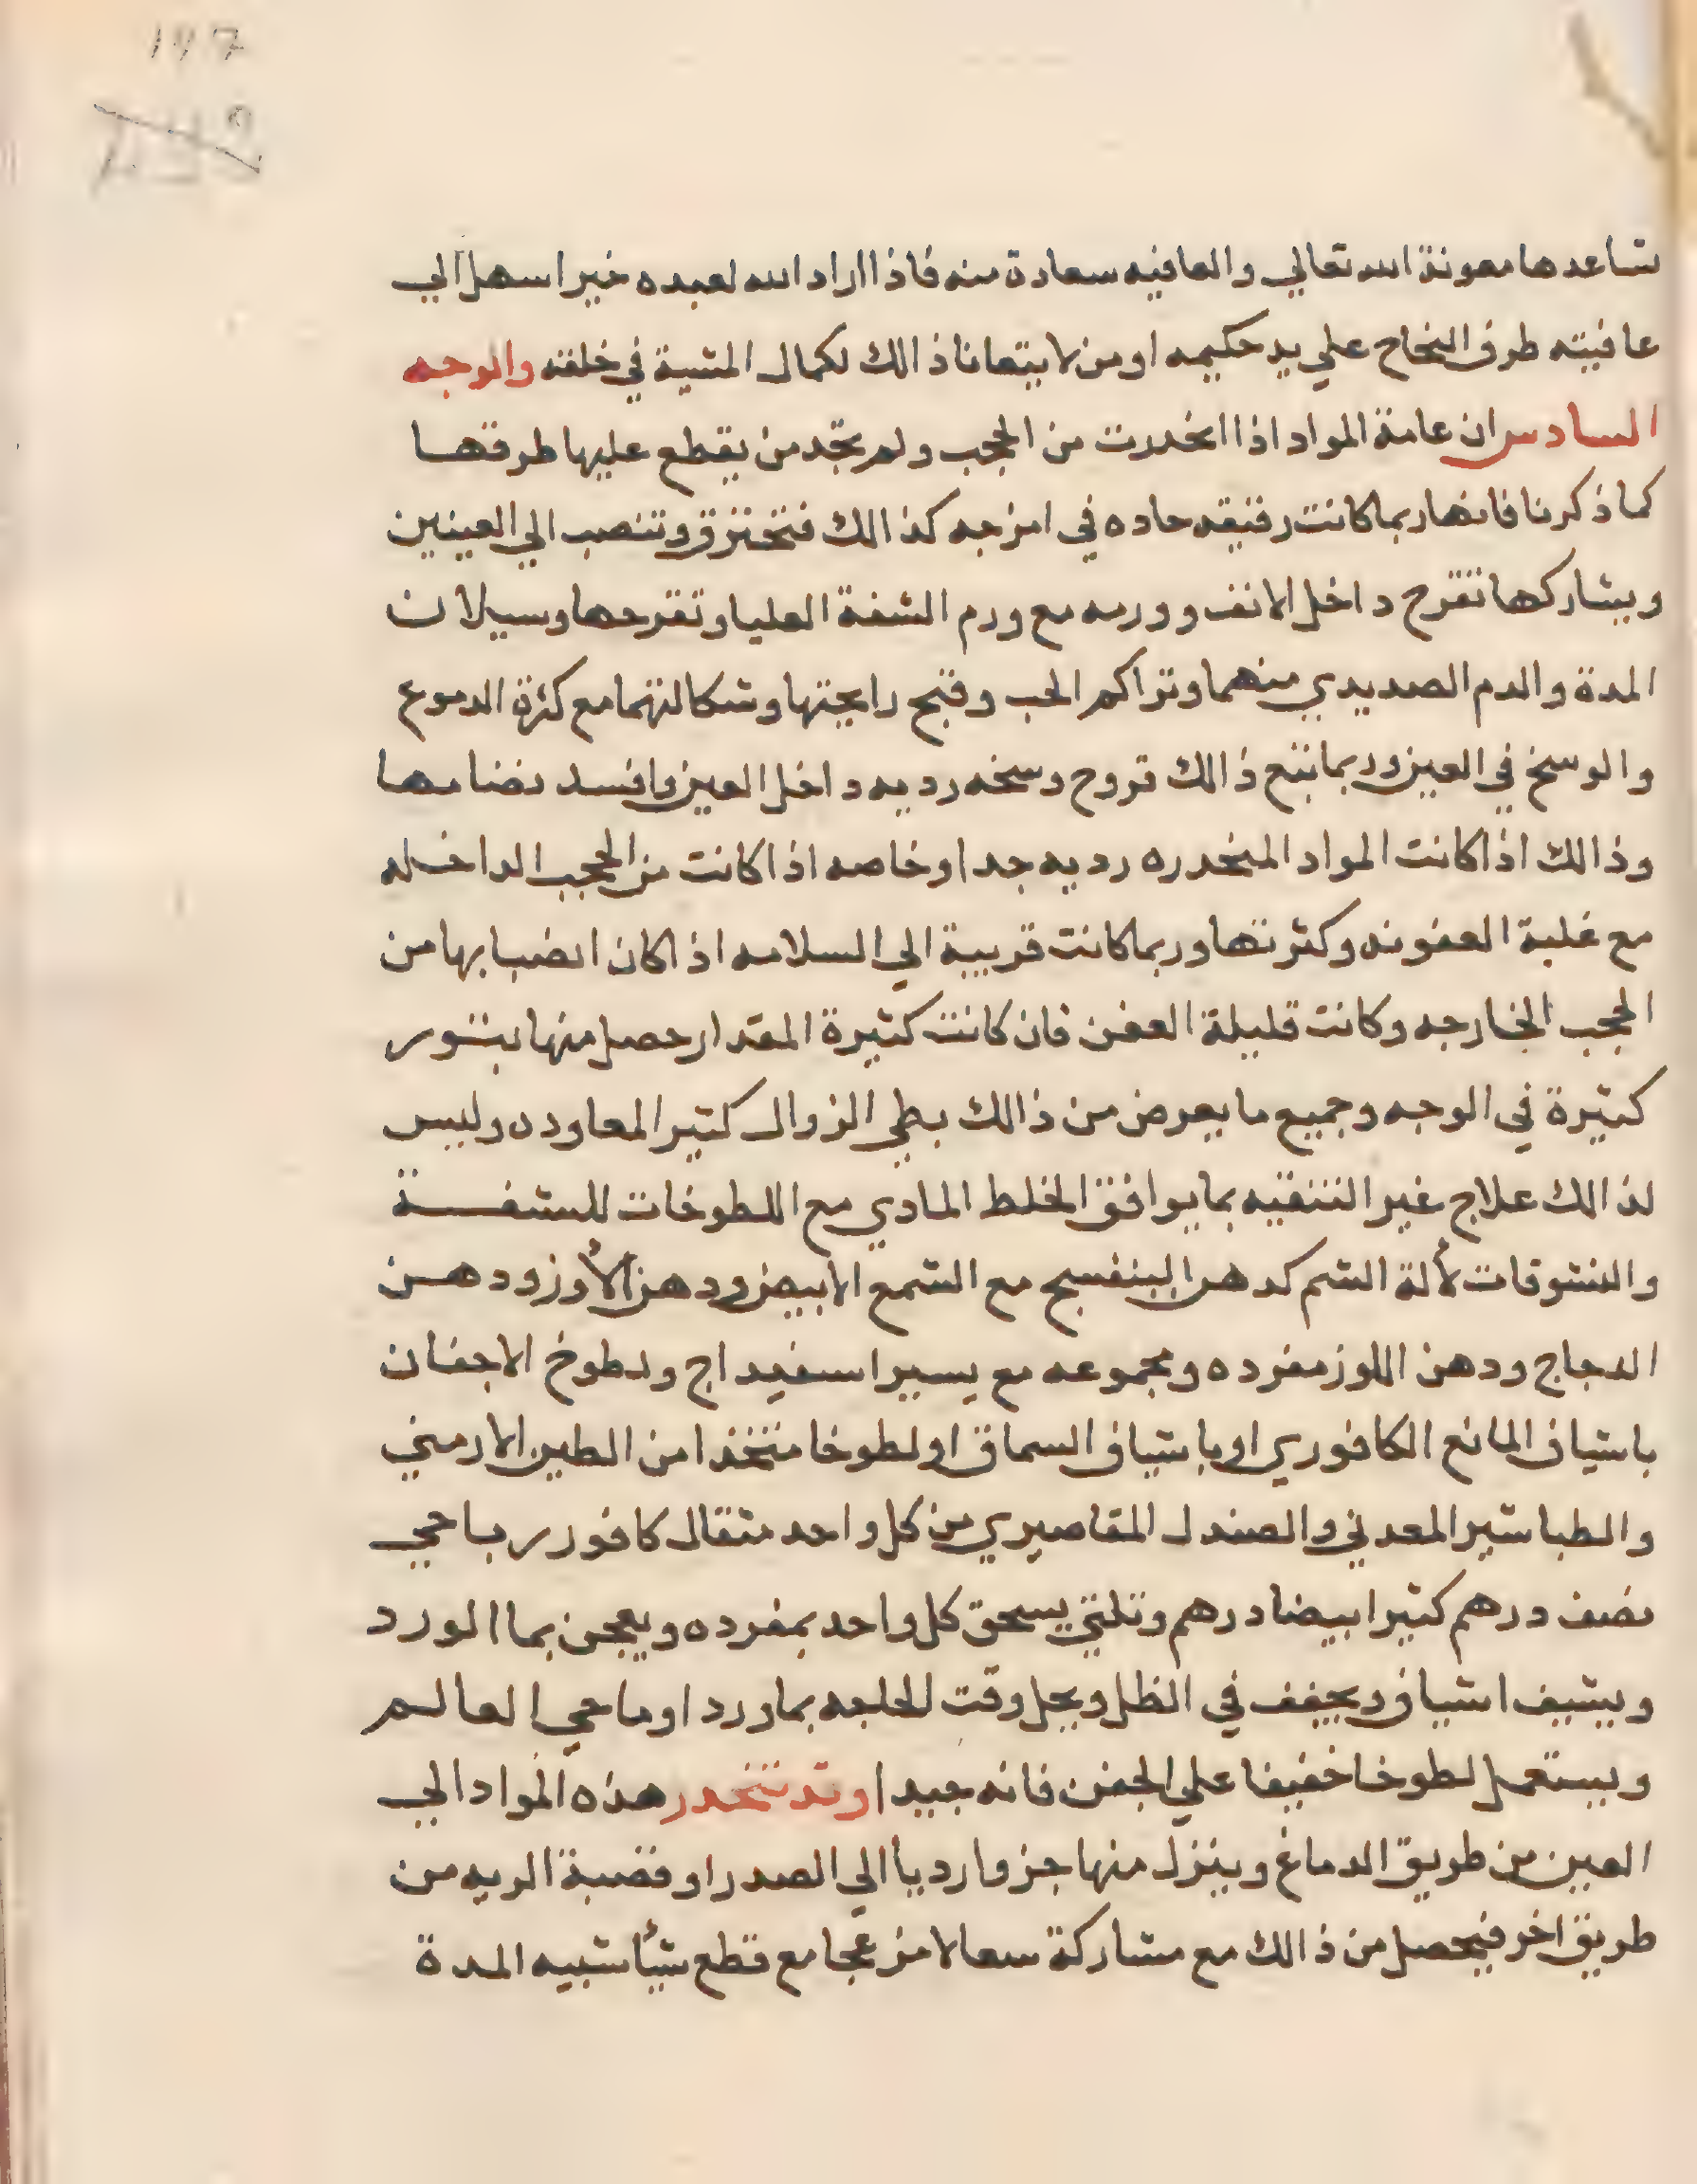 147
تساعدها معونة الله تعالي والعافيه سعادة منه فاذا اراد الله لعبده خيرا سهل الي
عافيته طرق النجاح علي يد حكيمه او من لا يتعانا ذالك لكمال المشية في خلقه والوجه
السادس ان عامة المواد اذا انحدرت من الحجب ولم تجد من يقطع عليها طرقها
كما ذكرنا فانها ربما كانت رقيقه حاده في امزجه كذالك فتحترق وتنصب الي العينين
ويشاركها تقرح داخل الانف وورمه مع ورم الشفة العليا وتقرحها وسيلان
المدة والدم الصديدي منهما وتراكم الحب وقبح رايحتها وشكالتهما مع كثرة الدموع
والوسخ في العين وربما يتبع ذالك قروح وسخه رديه داخل العين وافسد نضامها
وذالك اذا كانت المواد المنحدره رديه جدا وخاصه اذا كانت من الحجب الداخله
مع غلبة العفونه وكثرتها وربما كانت قريبة الي السلامه اذا كان انصبابها من
الحجب الخارجه وكانت قليلة العفن فان كانت كثيرة المقدار حصل منها بثور
كثيرة في الوجه وجميع ما يعرض من ذالك بطي الزوال كثير المعاوده وليس
لذالك علاج غير التنقيه بما يوافق الخلط المادي مع اللطوخات للشفة
والنشوقات لألة الشم كدهن البنفسج مع الشمع الابيض ودهن الأوز ودهن
الدجاج ودهن اللوز مفرده ومجموعه مع يسير اسفيداج ولطوخ الاجفان
باشياف المانع الكافوري او باشياف السماق او لطوخا متخذا من الطين الارمني
والطباشير المعدني والصندل المقاصيري من كل واحد مثقال كافور رباحي
نصف درهم كثيرا بيضا درهم وثلثي يسحق كل واحد بمفرده ويعجن بما الورد
ويشيف اشياف ويجفف في الظل ويحل وقت الحاجه بماورد او ما حي العالم
ويستعمل لطوخا خفيفا علي الجفن فانه جيدا وقد تنحدر هذه المواد الي
العين من طريق الدماغ وينزل منها جزوا رديا الي الصدر او قصبة الريه من
طريق اخر فيحصل من ذالك مع مشاركة سعالا مزعجا مع قطع شيأ شبيه المدة